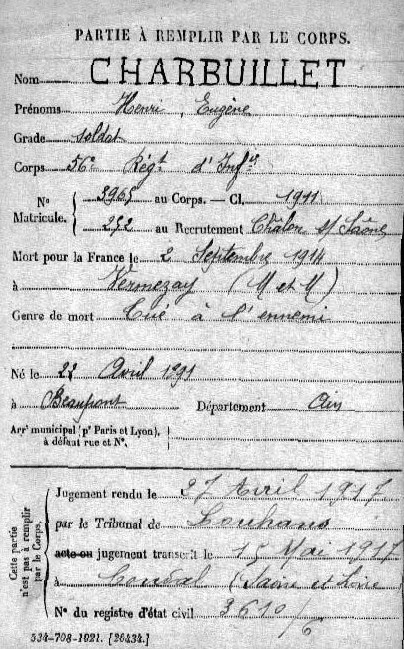 PARTIE À REMPLIR PAR LE CORPS.
Nom CHARBUILLET
Prénoms Henri, Eugène
Grade soldat
Corps 56e Régt d'Infie
No Matricule. 3965 au Corps. — Cl. 1911
252 au Recrutement Châlon s/ Saône
Mort pour la France le 2 Septembre 1914
à Vermezay (M et M)
Genre de mort Tué à l'ennemi
Né le 22 Avril 1891
à Beaupont Département Ain
Arrt municipal (pr Paris et Lyon), à défaut rue et No.
Cette partie n'est pas à remplir par le Corps.
Jugement rendu le 27 Avril 1917
par le Tribunal de Louhans
acte ou jugement transcrit le 15 Mai 1917
à Condal (Saône et Loire
No du registre d'état civil 3610/6
534-708-1921. [26434.]